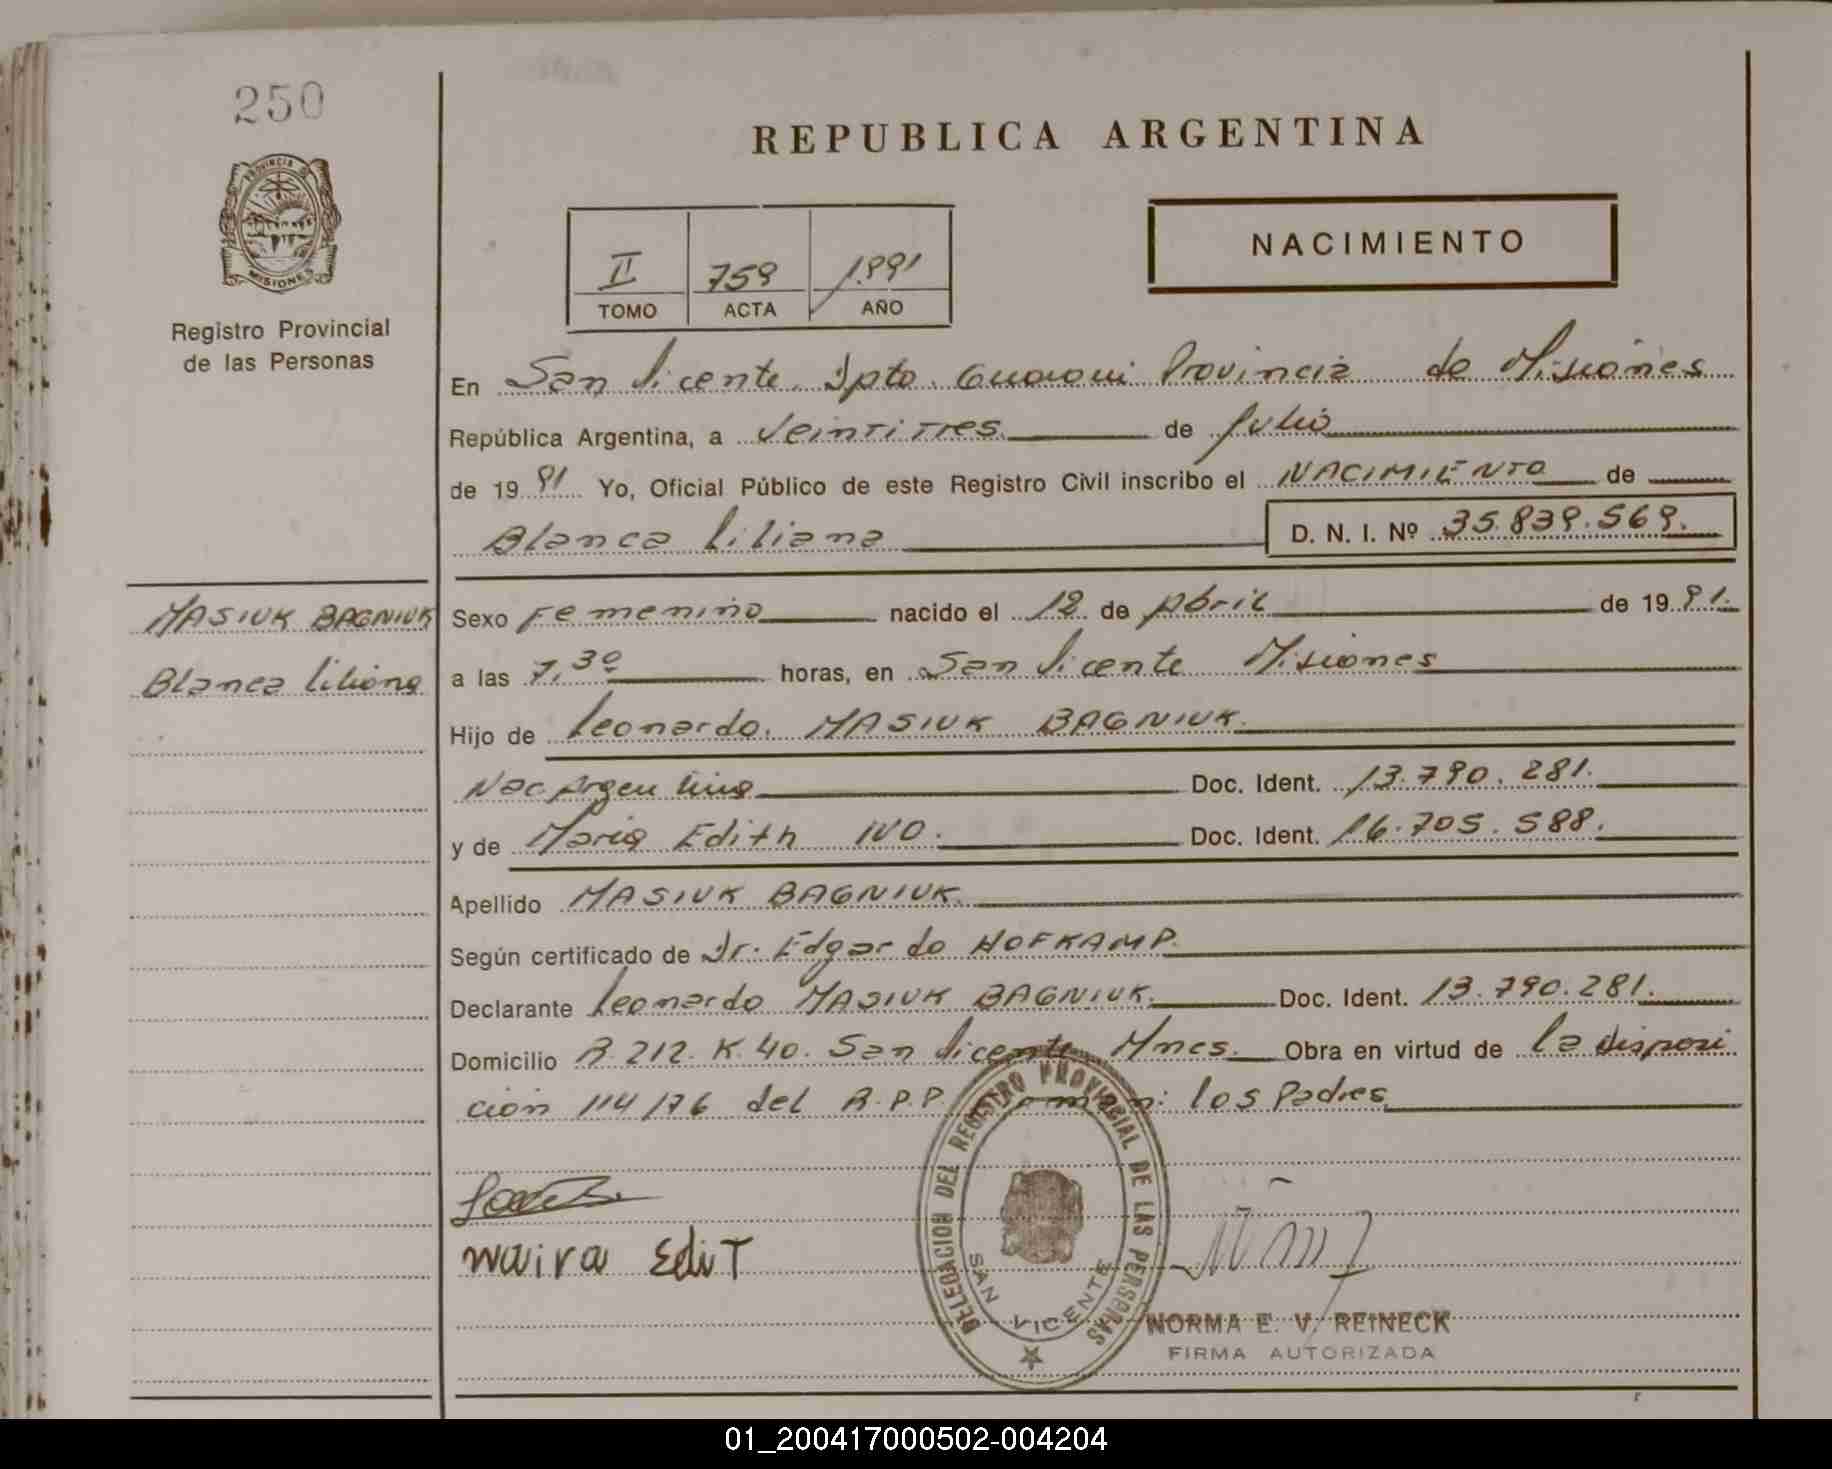 250
PROVINCIA DE
MISIONES
Registro Provincial
de las Personas
MASIUK BAGNIUK
Blanca Liliana
REPUBLICA ARGENTINA
II 759 1.991
TOMO ACTA AÑO
NACIMIENTO
En San Vicente. Dpto. Guarani Provincia de Misiones
República Argentina, a Veintitres de Julio
de 1991 Yo, Oficial Público de este Registro Civil inscribo el NACIMIENTO de
Blanca Liliana D. N. I. Nº 35.839.569.
Sexo Femenino nacido el 12 de Abril de 1991.
a las 7,30 horas, en San Vicente Misiones
Hijo de Leonardo. MASIUK BAGNIUK.
Nac Argentina Doc. Ident. 13.790.281.
y de Maria Edith IVO. Doc. Ident. 16.705.588.
Apellido MASIUK BAGNIUK.
Según certificado de Dr. Edgardo HOFKAMP.
Declarante Leonardo MASIUK BAGNIUK. Doc. Ident. 13.790.281.
Domicilio R.212. K.40. San Vicente Mnes. Obra en virtud de la disposi
ción 114/76 del R.P.P. los Padres
maira EdiT
DELEGACION DEL REGISTRO PROVINCIAL DE LAS PERSONAS
SAN VICENTE
NORMA E. V. REINECK
FIRMA AUTORIZADA
01_200417000502-004204